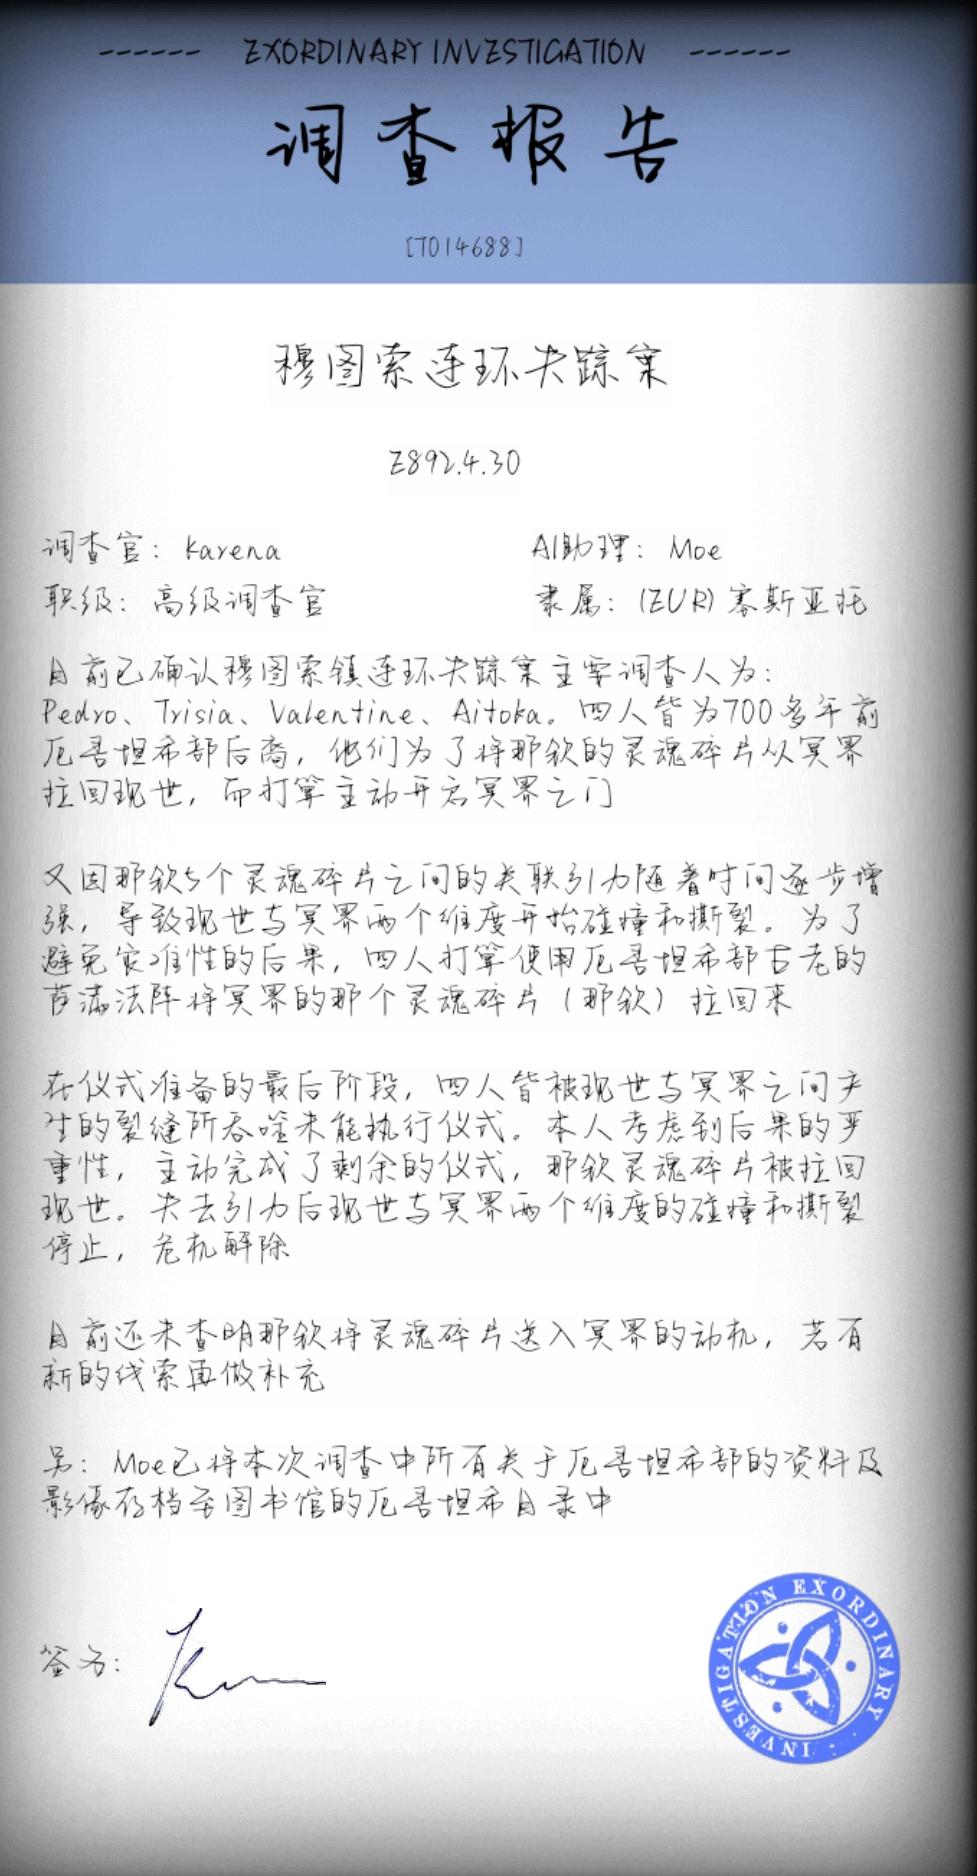 ------ EXORDINARY INVESTIGATION ------
调查报告
[T014688]
穆图索连环失踪案
Z892.4.30
调查官：Karena
AI助理：Moe
职级：高级调查官
隶属：(EUR)赛斯亚托
目前已确认穆图索镇连环失踪案主要调查人为：
Pedro、Trisia、Valentine、Aitoka。四人皆为700多年前
厄吾坦希部后裔，他们为了将那钦的灵魂碎片从冥界
拉回现世，而打算主动开启冥界之门
又因那钦5个灵魂碎片之间的关联引力随着时间逐步增
强，导致现世与冥界两个维度开始碰撞和撕裂。为了
避免灾难性的后果，四人打算使用厄吾坦希部古老的
萨满法阵将冥界的那个灵魂碎片（那钦）拉回来
在仪式准备的最后阶段，四人皆被现世与冥界之间产
生的裂缝所吞噬未能执行仪式。本人考虑到后果的严
重性，主动完成了剩余的仪式，那钦灵魂碎片被拉回
现世。失去引力后现世与冥界两个维度的碰撞和撕裂
停止，危机解除
目前还未查明那钦将灵魂碎片送入冥界的动机，若有
新的线索再做补充
另：Moe已将本次调查中所有关于厄吾坦希部的资料及
影像存档至图书馆的厄吾坦希目录中
签名：
INVESTIGATION EXORDINARY